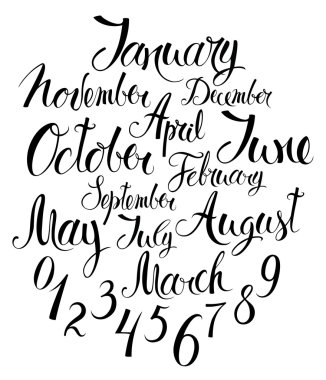 January
November December
April
October June
February
September
May July August
March
0 1 2 3 4 5 6 7 8 9